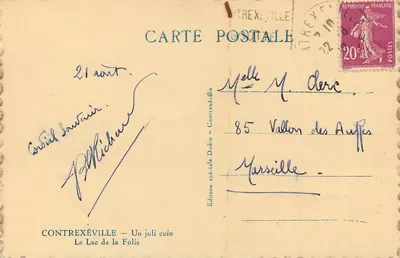 TREXÉVILLE
CARTE POSTALE
RÉPUBLIQUE FRANÇAISE
20c
POSTES
21 août.
Cordial Souvenir.
Melle M. Clerc
85 Vallon des Auffes
Marseille.
Edition spéciale Dodin - Contrexéville
CONTREXÉVILLE – Un joli coin
Le Lac de la Folie